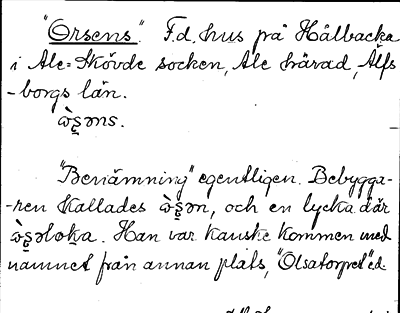 "Orsens". F.d. hus på Hålbacka
i Ale-Skövde socken, Ale härad, Älfs
-borgs län.
ὼs̮əns.
"Benämning" egentligen. Bebygga-
-ren kallades ὼs̮ən, och en lycka där
ὼs̮əloka. Han var kanske kommen med
namnet från annan plats, "Olsatorpet" e.d.